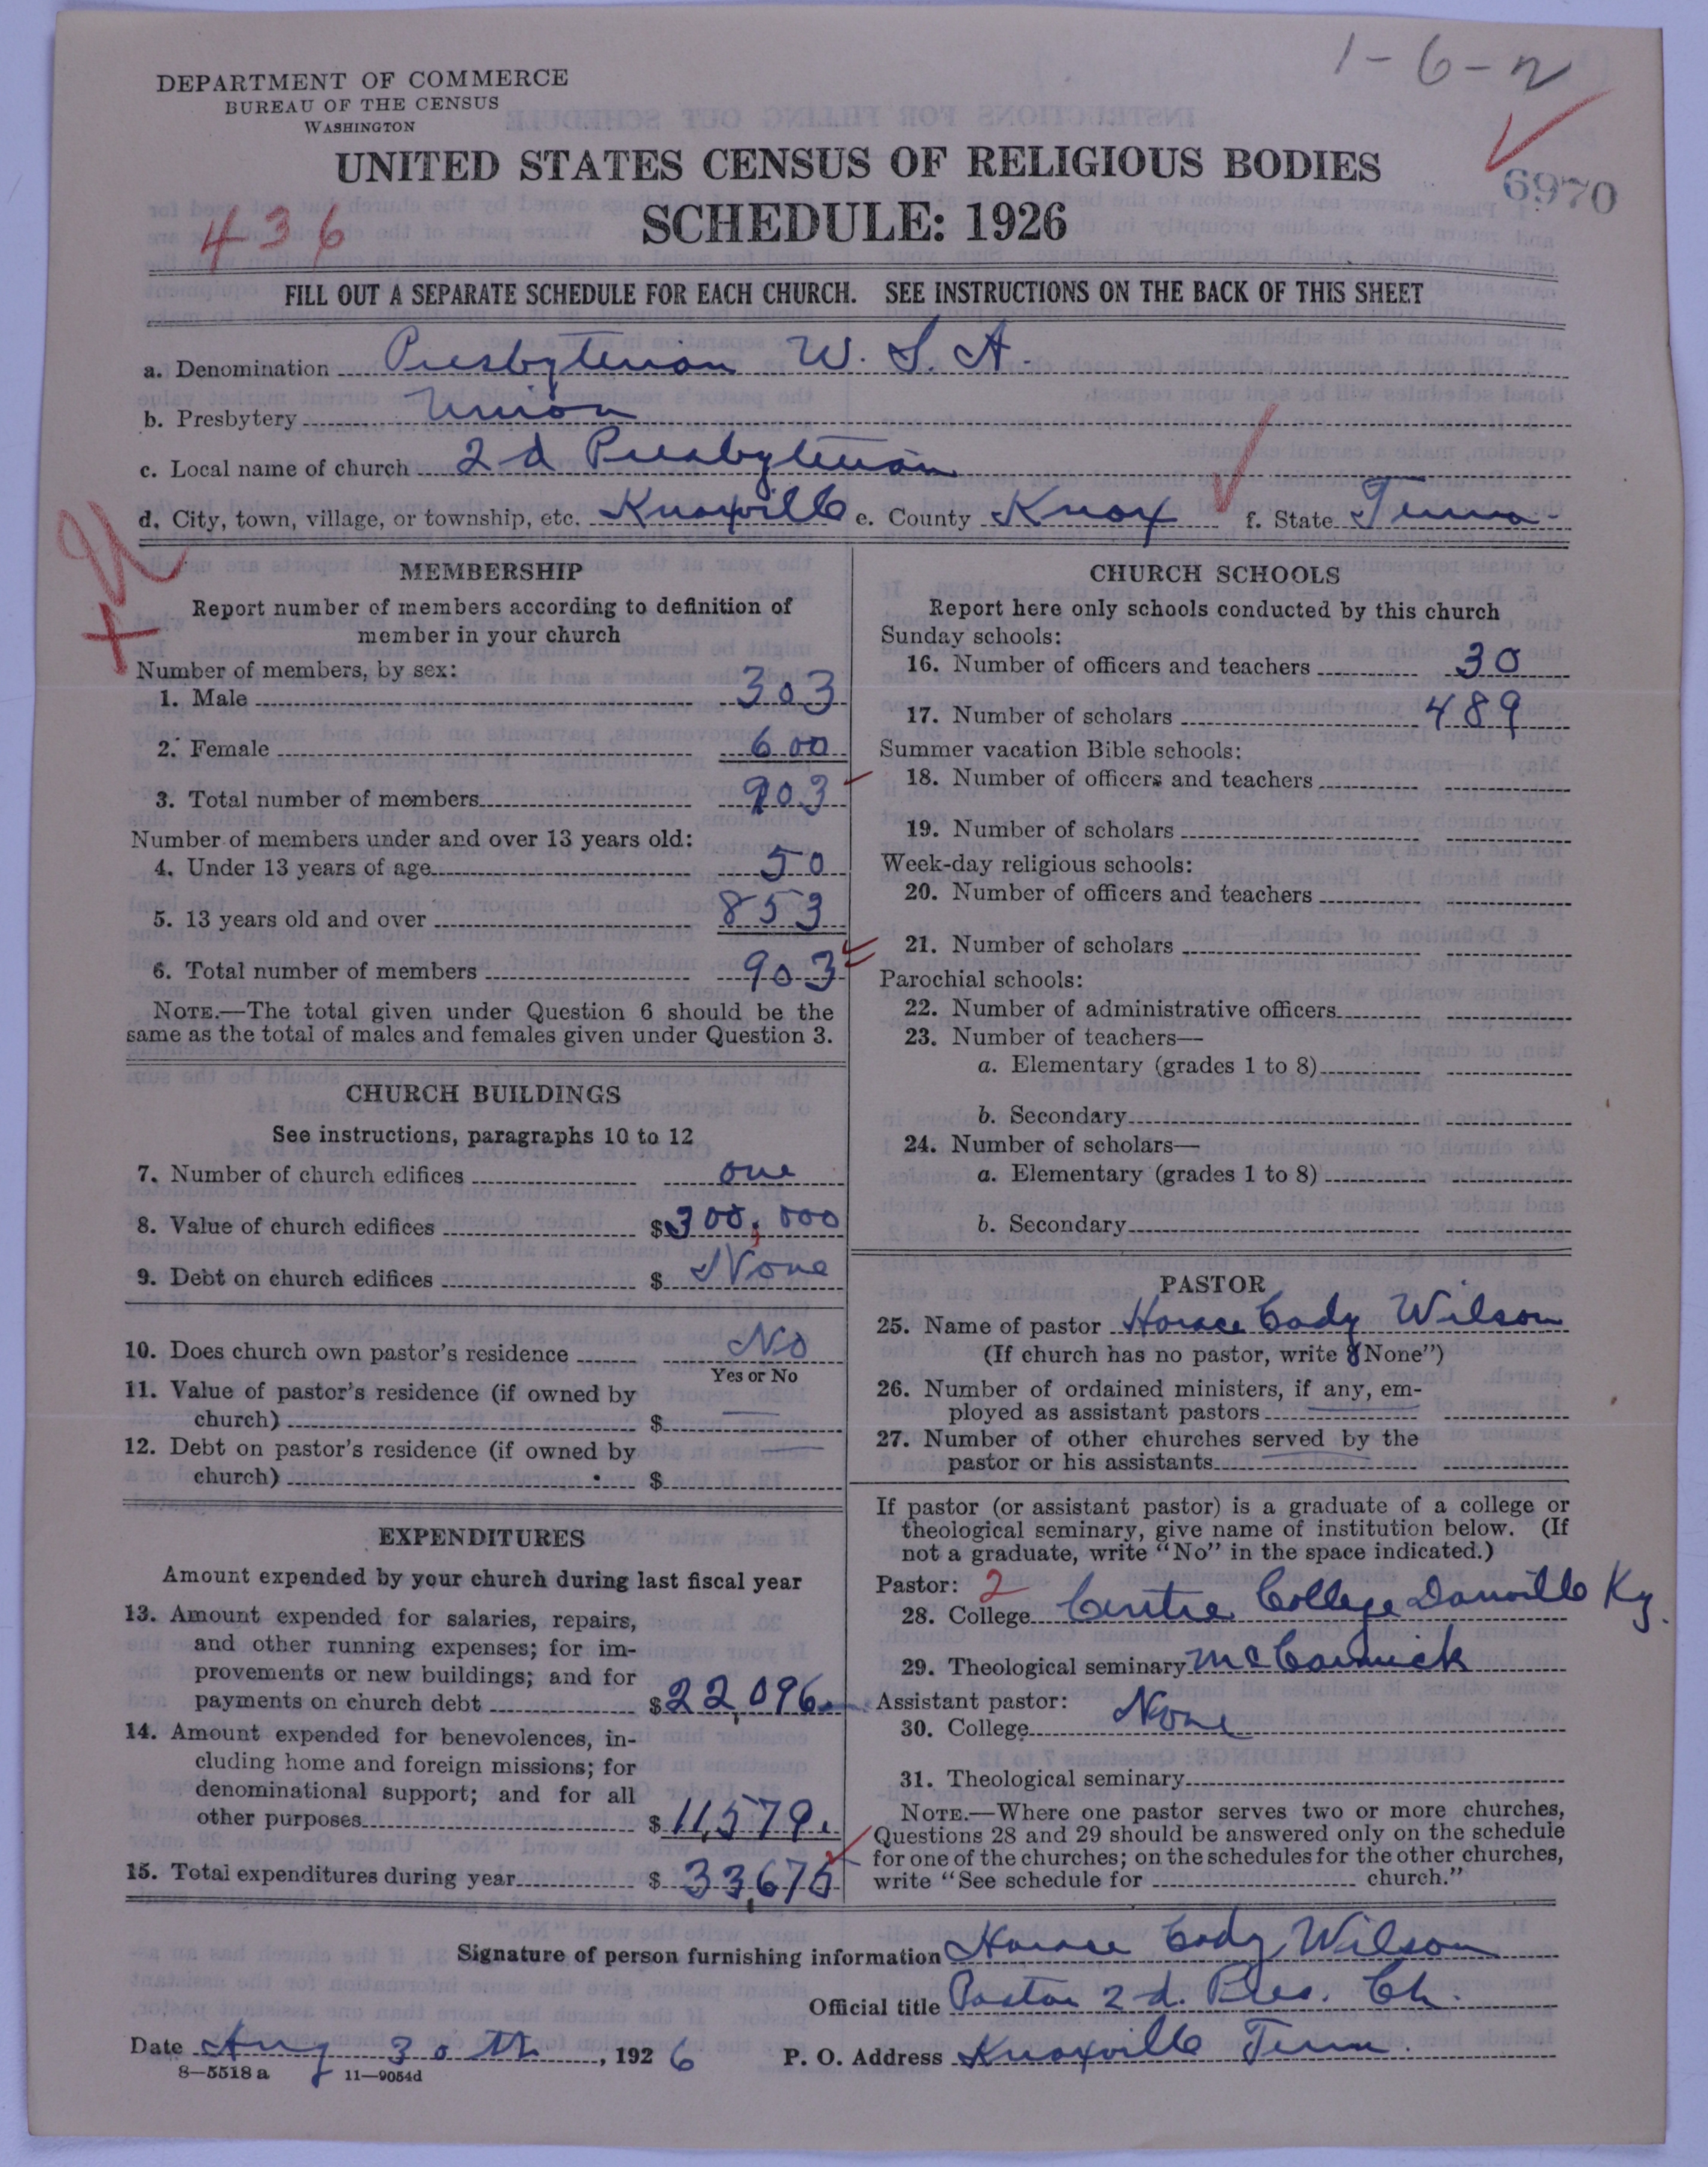 1-6-2
DEPARTMENT OF COMMERCE
BUREAU OF THE CENSUS
WASHINGTON
UNITED STATES CENSUS OF RELIGIOUS BODIES
6970
436
SCHEDULE: 1926
FILL OUT A SEPARATE SCHEDULE FOR EACH CHURCH. SEE INSTRUCTIONS ON THE BACK OF THIS SHEET
a. Denomination Presbyterian U. S. A.
b. Presbytery Union
c. Local name of church 2d Presbyterian
d. City, town, village, or township, etc. Knoxville e. County Knox f. State Tenn.
MEMBERSHIP
Report number of members according to definition of
member in your church
Number of members, by sex:
1. Male 303
2. Female 600
3. Total number of members 903
Number of members under and over 13 years old:
4. Under 13 years of age 50
5. 13 years old and over 853
6. Total number of members 903
NOTE.—The total given under Question 6 should be the
same as the total of males and females given under Question 3.
CHURCH BUILDINGS
See instructions, paragraphs 10 to 12
7. Number of church edifices one
8. Value of church edifices $300,000
9. Debt on church edifices $ None
10. Does church own pastor's residence No
Yes or No
11. Value of pastor's residence (if owned by
church) $ —
12. Debt on pastor's residence (if owned by
church) $ —
EXPENDITURES
Amount expended by your church during last fiscal year
13. Amount expended for salaries, repairs,
and other running expenses; for im-
provements or new buildings; and for
payments on church debt $22,096.
14. Amount expended for benevolences, in-
cluding home and foreign missions; for
denominational support; and for all
other purposes $11,579.
15. Total expenditures during year $33,675
CHURCH SCHOOLS
Report here only schools conducted by this church
Sunday schools:
16. Number of officers and teachers 30
17. Number of scholars 489
Summer vacation Bible schools:
18. Number of officers and teachers
19. Number of scholars
Week-day religious schools:
20. Number of officers and teachers
21. Number of scholars
Parochial schools:
22. Number of administrative officers
23. Number of teachers—
a. Elementary (grades 1 to 8)
b. Secondary
24. Number of scholars—
a. Elementary (grades 1 to 8)
b. Secondary
PASTOR
25. Name of pastor Horace Cady Wilson
(If church has no pastor, write "None")
26. Number of ordained ministers, if any, em-
ployed as assistant pastors —
27. Number of other churches served by the
pastor or his assistants —
If pastor (or assistant pastor) is a graduate of a college or
theological seminary, give name of institution below. (If
not a graduate, write "No" in the space indicated.)
Pastor: 2
28. College Centre College Danville Ky.
29. Theological seminary McCormick
Assistant pastor:
30. College None
31. Theological seminary
NOTE.—Where one pastor serves two or more churches,
Questions 28 and 29 should be answered only on the schedule
for one of the churches; on the schedules for the other churches,
write "See schedule for church."
Signature of person furnishing information Horace Cady Wilson
Official title Pastor 2d. Pres. Ch.
Date Aug 30th, 1926 P. O. Address Knoxville Tenn.
8—5518 a 11—9054d